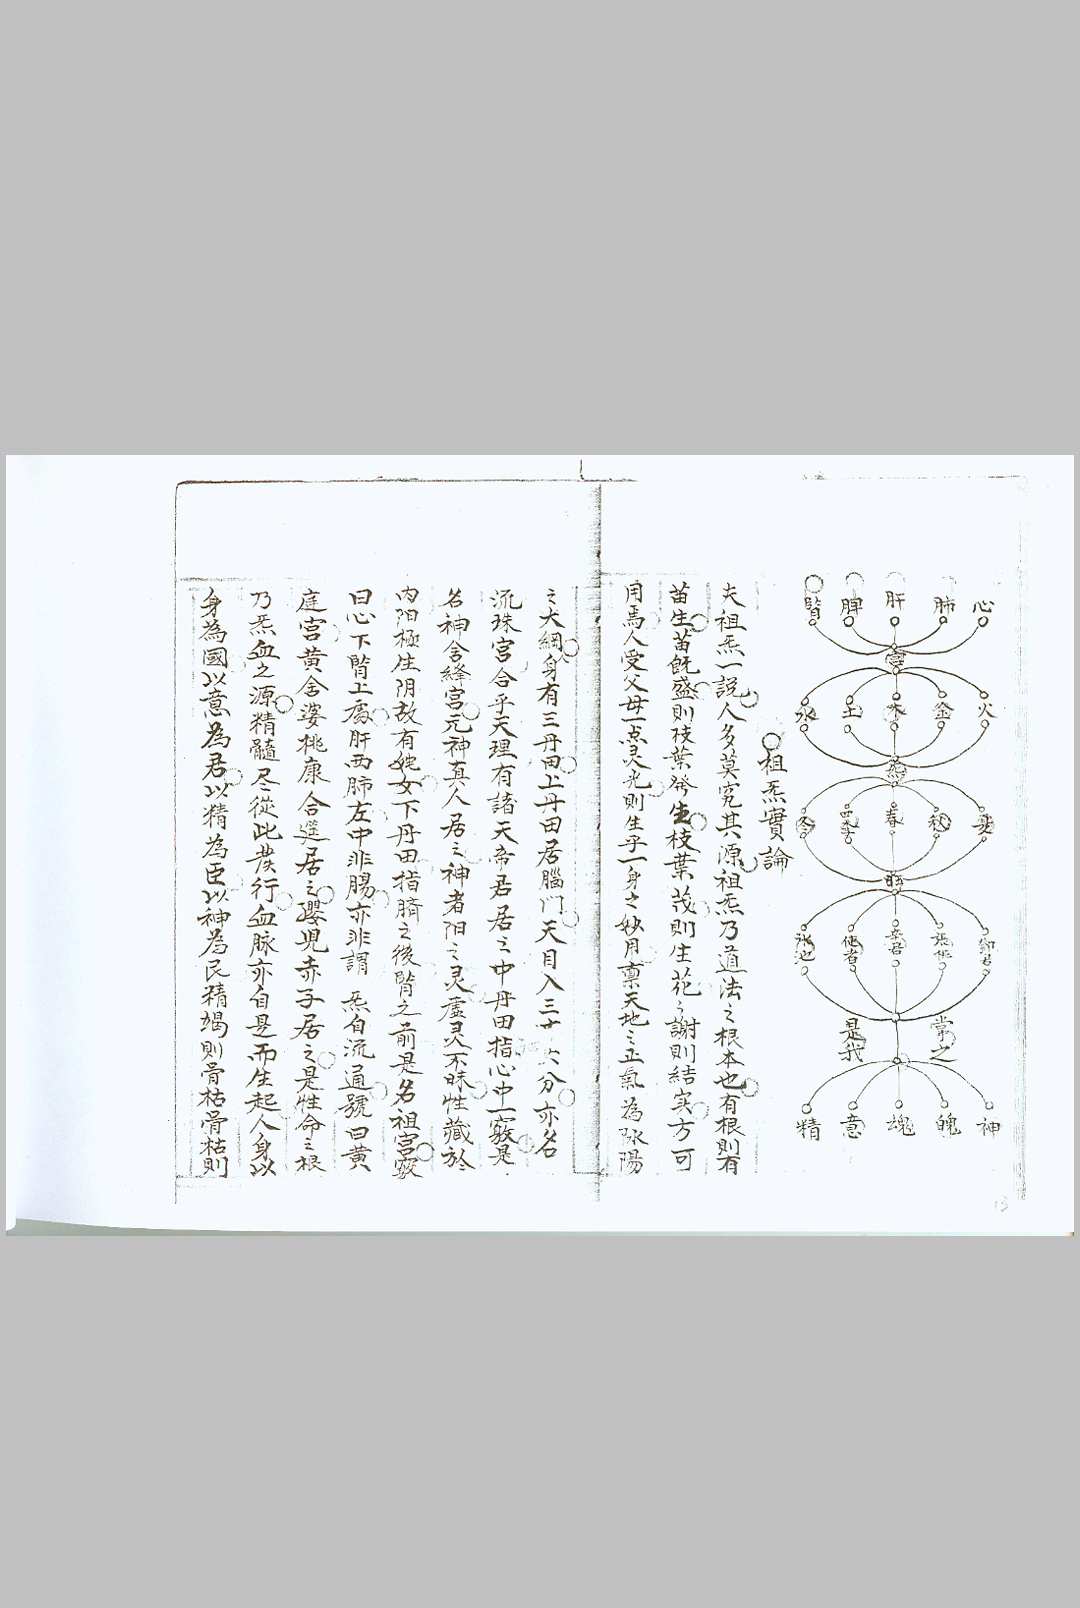 心 肺 肝 脾 腎
火 金 木 土 水
夏 秋 春 四季 冬
常之
是我
神 魄 魂 意 精
祖炁實論
夫祖炁一説人多莫究其源祖炁乃道法之根本也有根則有
苗生苗旣盛則枝葉發生枝葉茂則生花々謝則結实方可
用焉人受父母一点灵光則生乎一身之妙用禀天地之正氣為陰陽
之大綱身有三丹田上丹田居腦门天目入三寸六分亦名
流珠宮合乎天理有諸天帝君居之中丹田指心中一竅是
名神舍絳宮元神真人居之神者阳之灵虛灵不昧性藏於
内阳極生阴故有姹女下丹田指臍之後腎之前是名祖宮竅
曰心下腎上處肝西肺左中非腸亦非謂炁自流通號曰黄
庭宮黄舍婆桃康合延居之嬰児赤子居之是性命之根
乃炁血之源精髓尽從此發行血脉亦自是而生起人身以
身為國以意為君以精為臣以神為民精竭則骨枯骨枯則
13